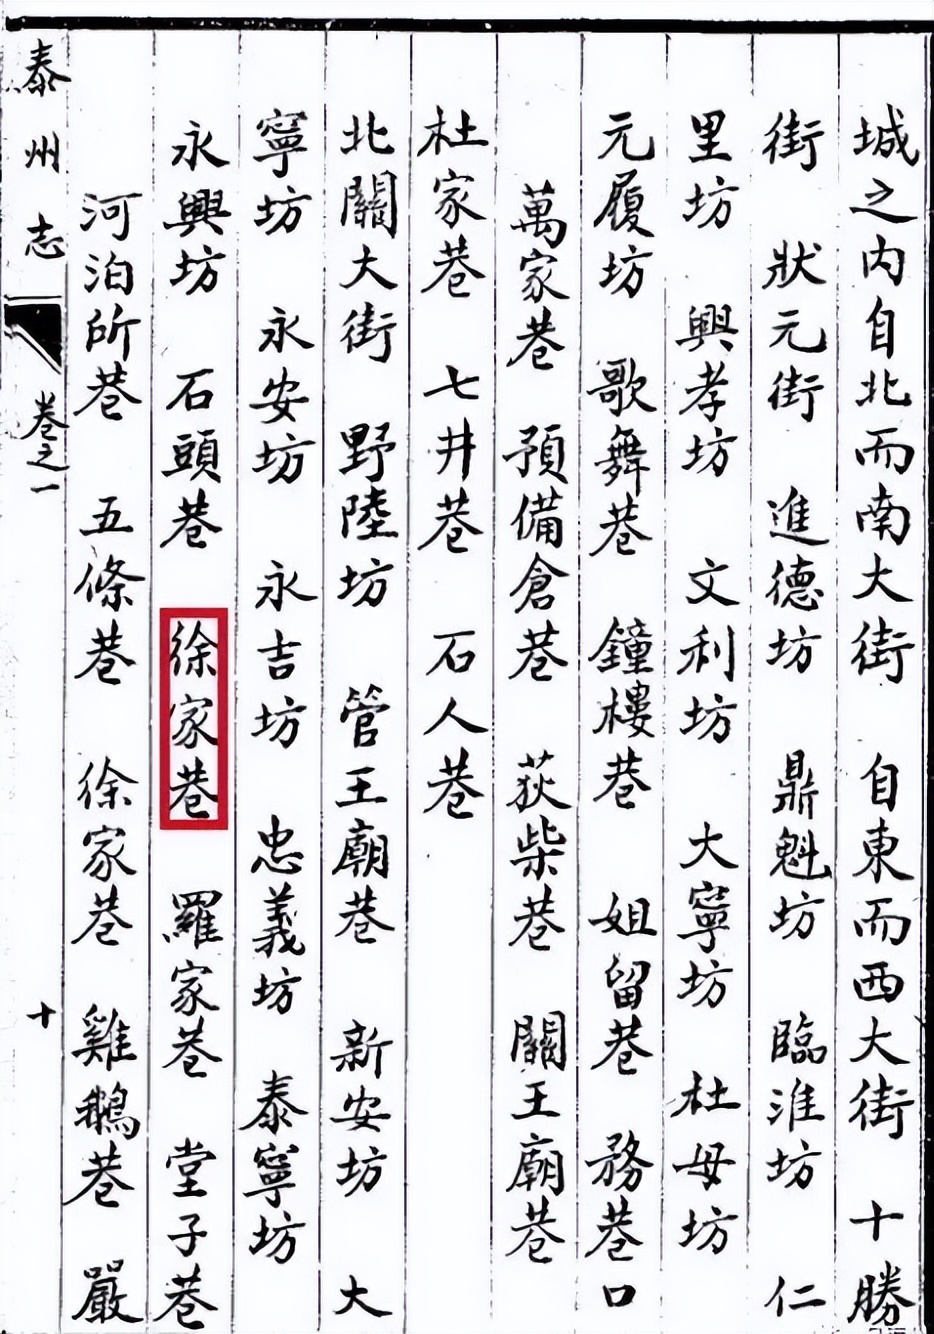 城之内自北而南大街 自東而西大街 十勝
街 狀元街 進德坊 鼎魁坊 臨淮坊 仁
里坊 興孝坊 文利坊 大寧坊 杜母坊
元履坊 歌舞巷 鐘樓巷 姐留巷 務巷口
萬家巷 預備倉巷 荻柴巷 關王廟巷
杜家巷 七井巷 石人巷
北關大街 野陸坊 管王廟巷 新安坊 大
寧坊 永安坊 永吉坊 忠義坊 泰寧坊
永興坊 石頭巷 徐家巷 羅家巷 堂子巷
河泊所巷 五條巷 徐家巷 雞鵝巷 嚴
泰州志 卷之一 十